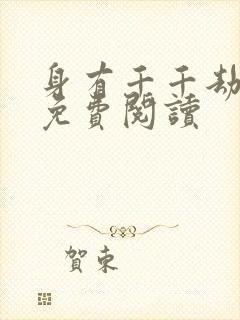 身有千千劫
免費閱讀
賀東